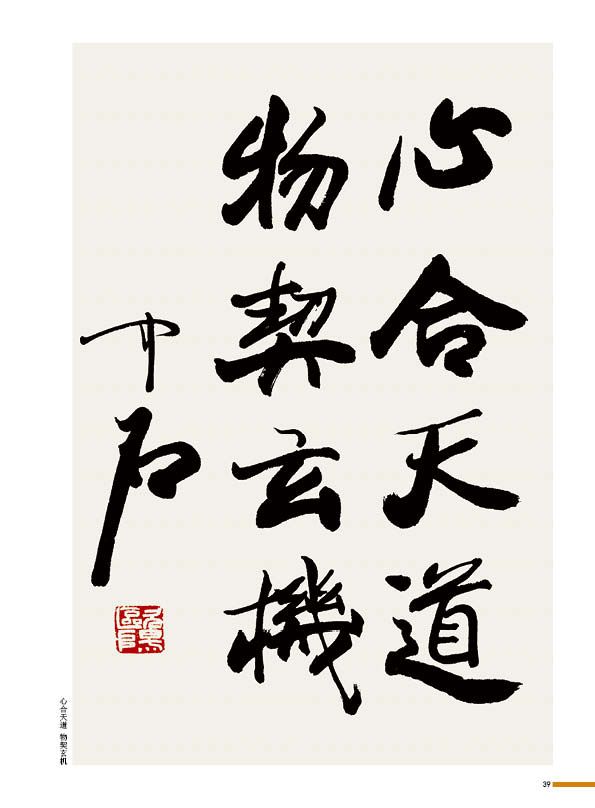 心合天道
物契玄機
心合天道 物契玄机
39